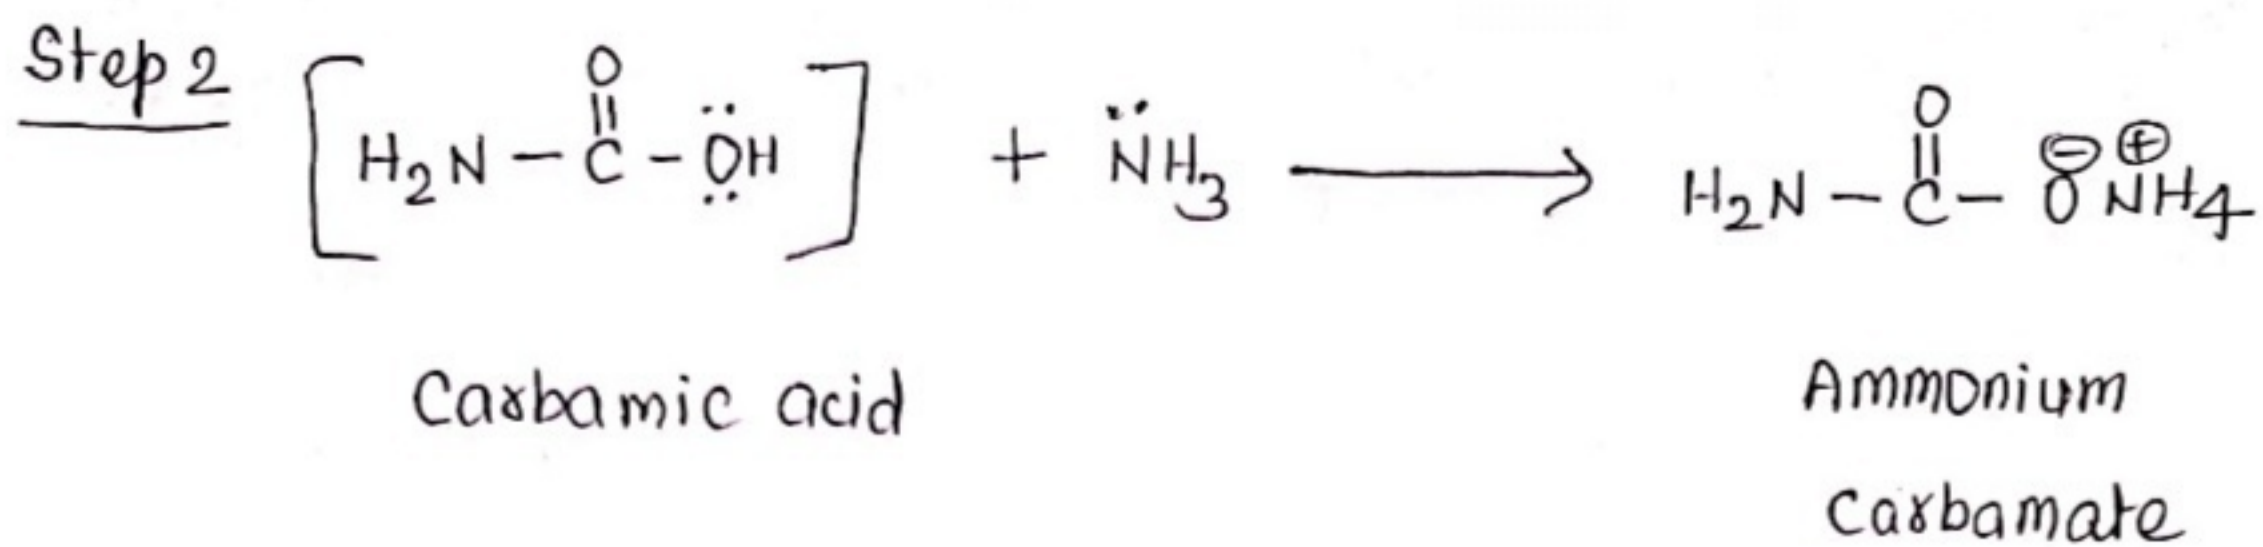 Step 2
[H₂N-C(=O)-OH] + NH₃ ⟶ H₂N-C(=O)-O⊖ NH₄⊕
Carbamic acid
Ammonium
Carbamate